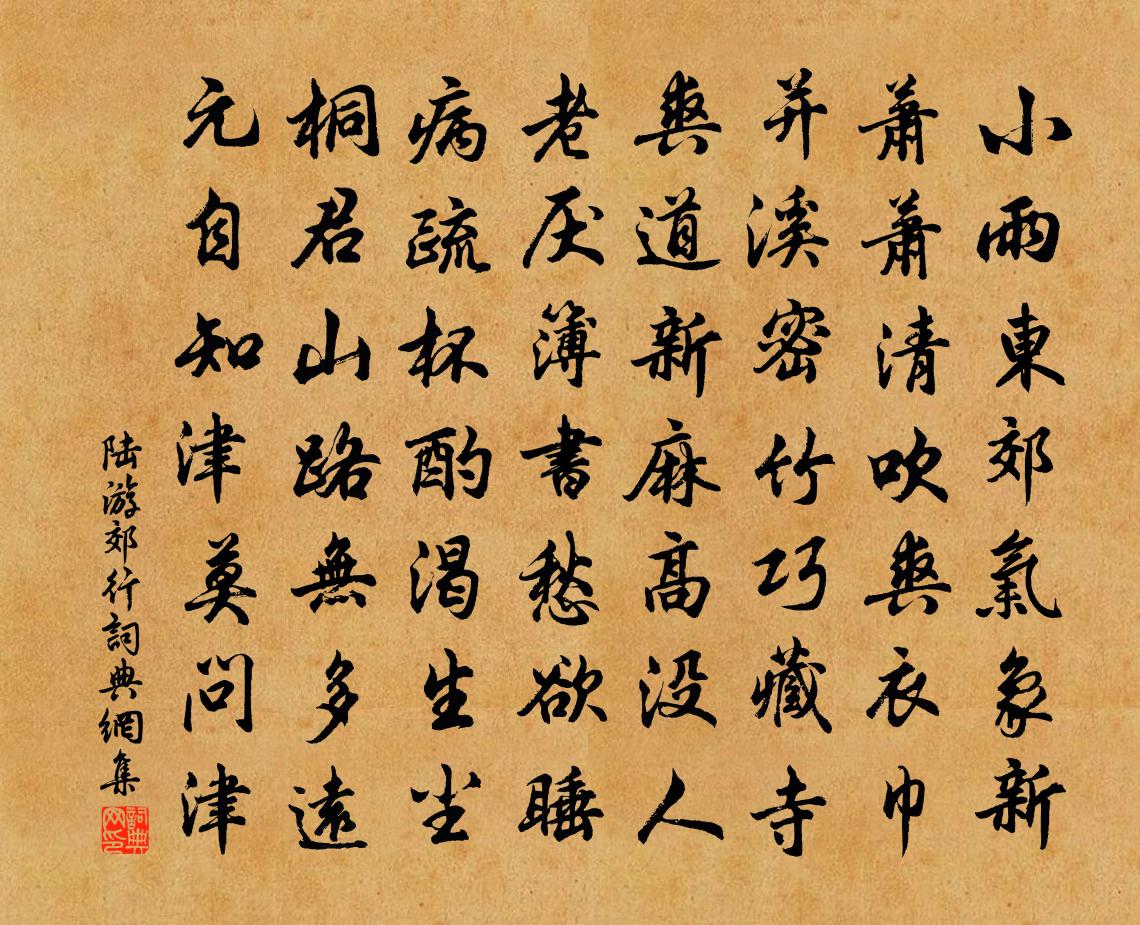 小雨東郊氣象新
蕭蕭清吹爽衣巾
并溪密竹巧藏寺
爽道新麻高没人
老厌簿書愁欲睡
病疏杯酌渴生尘
桐君山路無多遠
元自知津莫問津
陆游郊行詞典網集
詞典网印